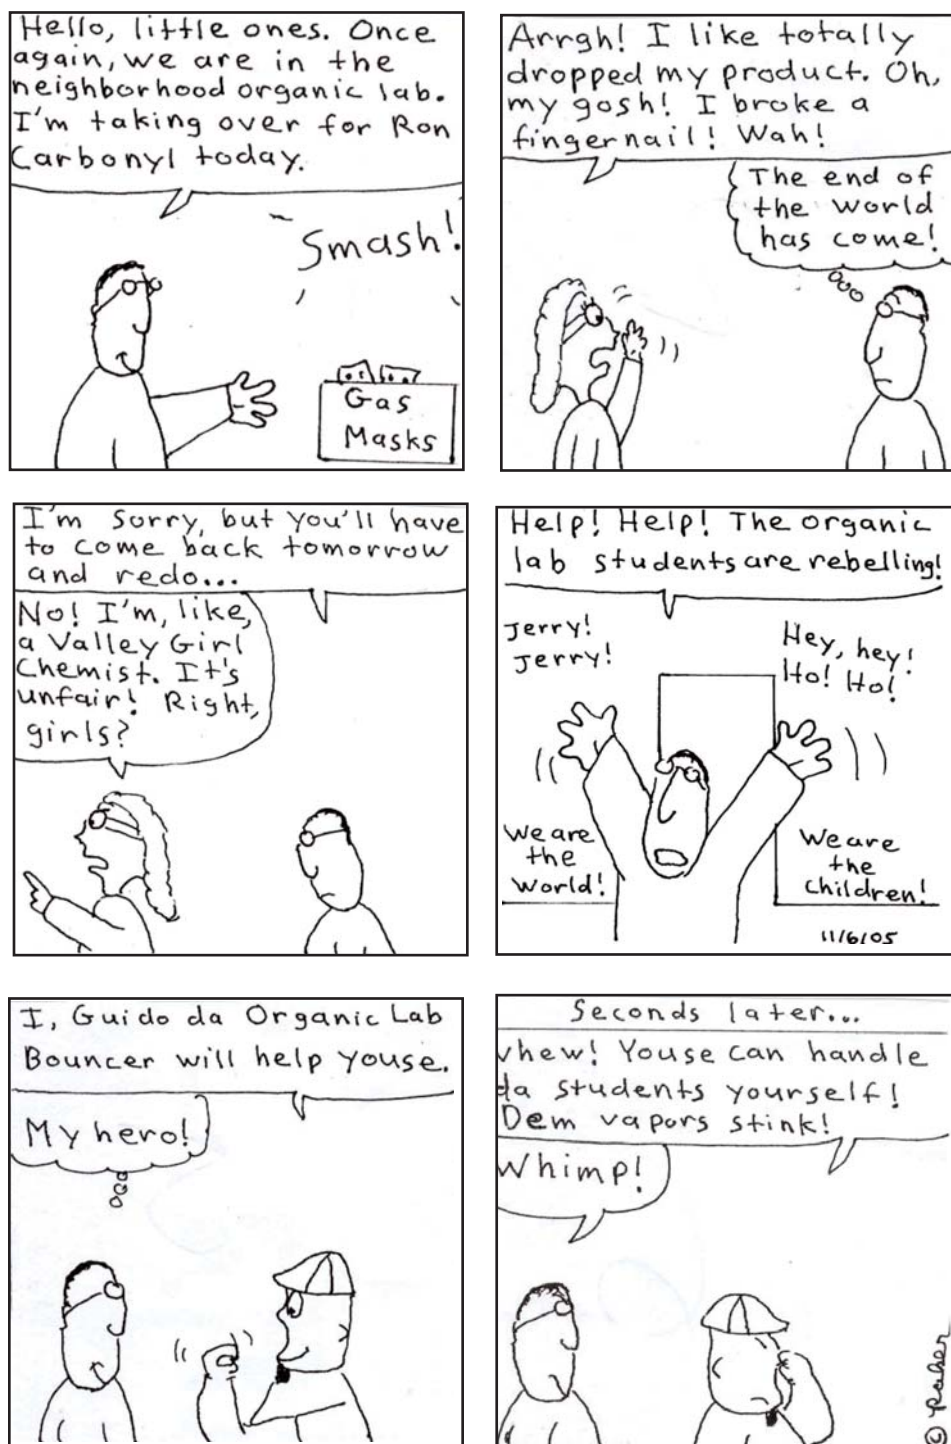 Hello, little ones. Once
again, we are in the
neighborhood organic lab.
I'm taking over for Ron
Carbonyl today.
Smash!
Gas
Masks
Arrgh! I like totally
dropped my product. Oh,
my gosh! I broke a
fingernail! Wah!
The end of
the world
has come!
I'm sorry, but you'll have
to come back tomorrow
and redo...
No! I'm, like,
a Valley Girl
Chemist. It's
unfair! Right,
girls?
Help! Help! The organic
lab students are rebelling!
Jerry!
Jerry!
Hey, hey!
Ho! Ho!
We are
the
world!
We are
the
children!
11/6/05
I, Guido da Organic Lab
Bouncer will help youse.
My hero!
Seconds later...
whew! Youse can handle
da students yourself!
Dem vapors stink!
Whimp!
© Raher